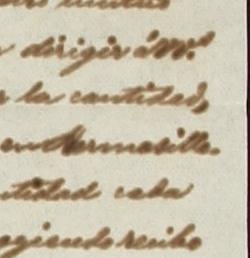 dirigir á VV.
la cantidad,
en Hermosillo.
ntidad cada
ogiendo recibo